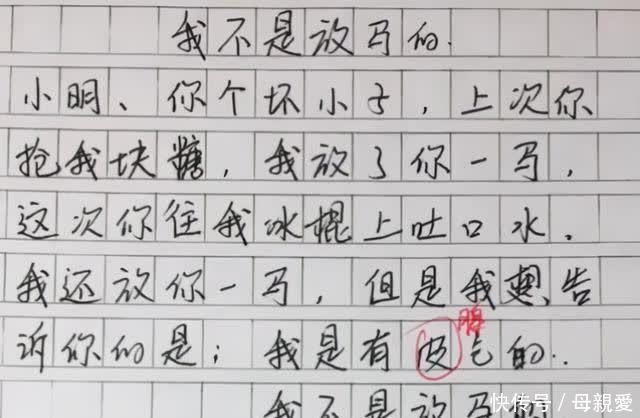 我不是放马的.
小明、你个坏小子，上次你
抢我块糖，我放了你一马，
这次你往我冰棍上吐口水.
我还放你一马，但是我想告
脾
诉你的是；我是有皮气的..
我不是放马的
快传号／母親愛